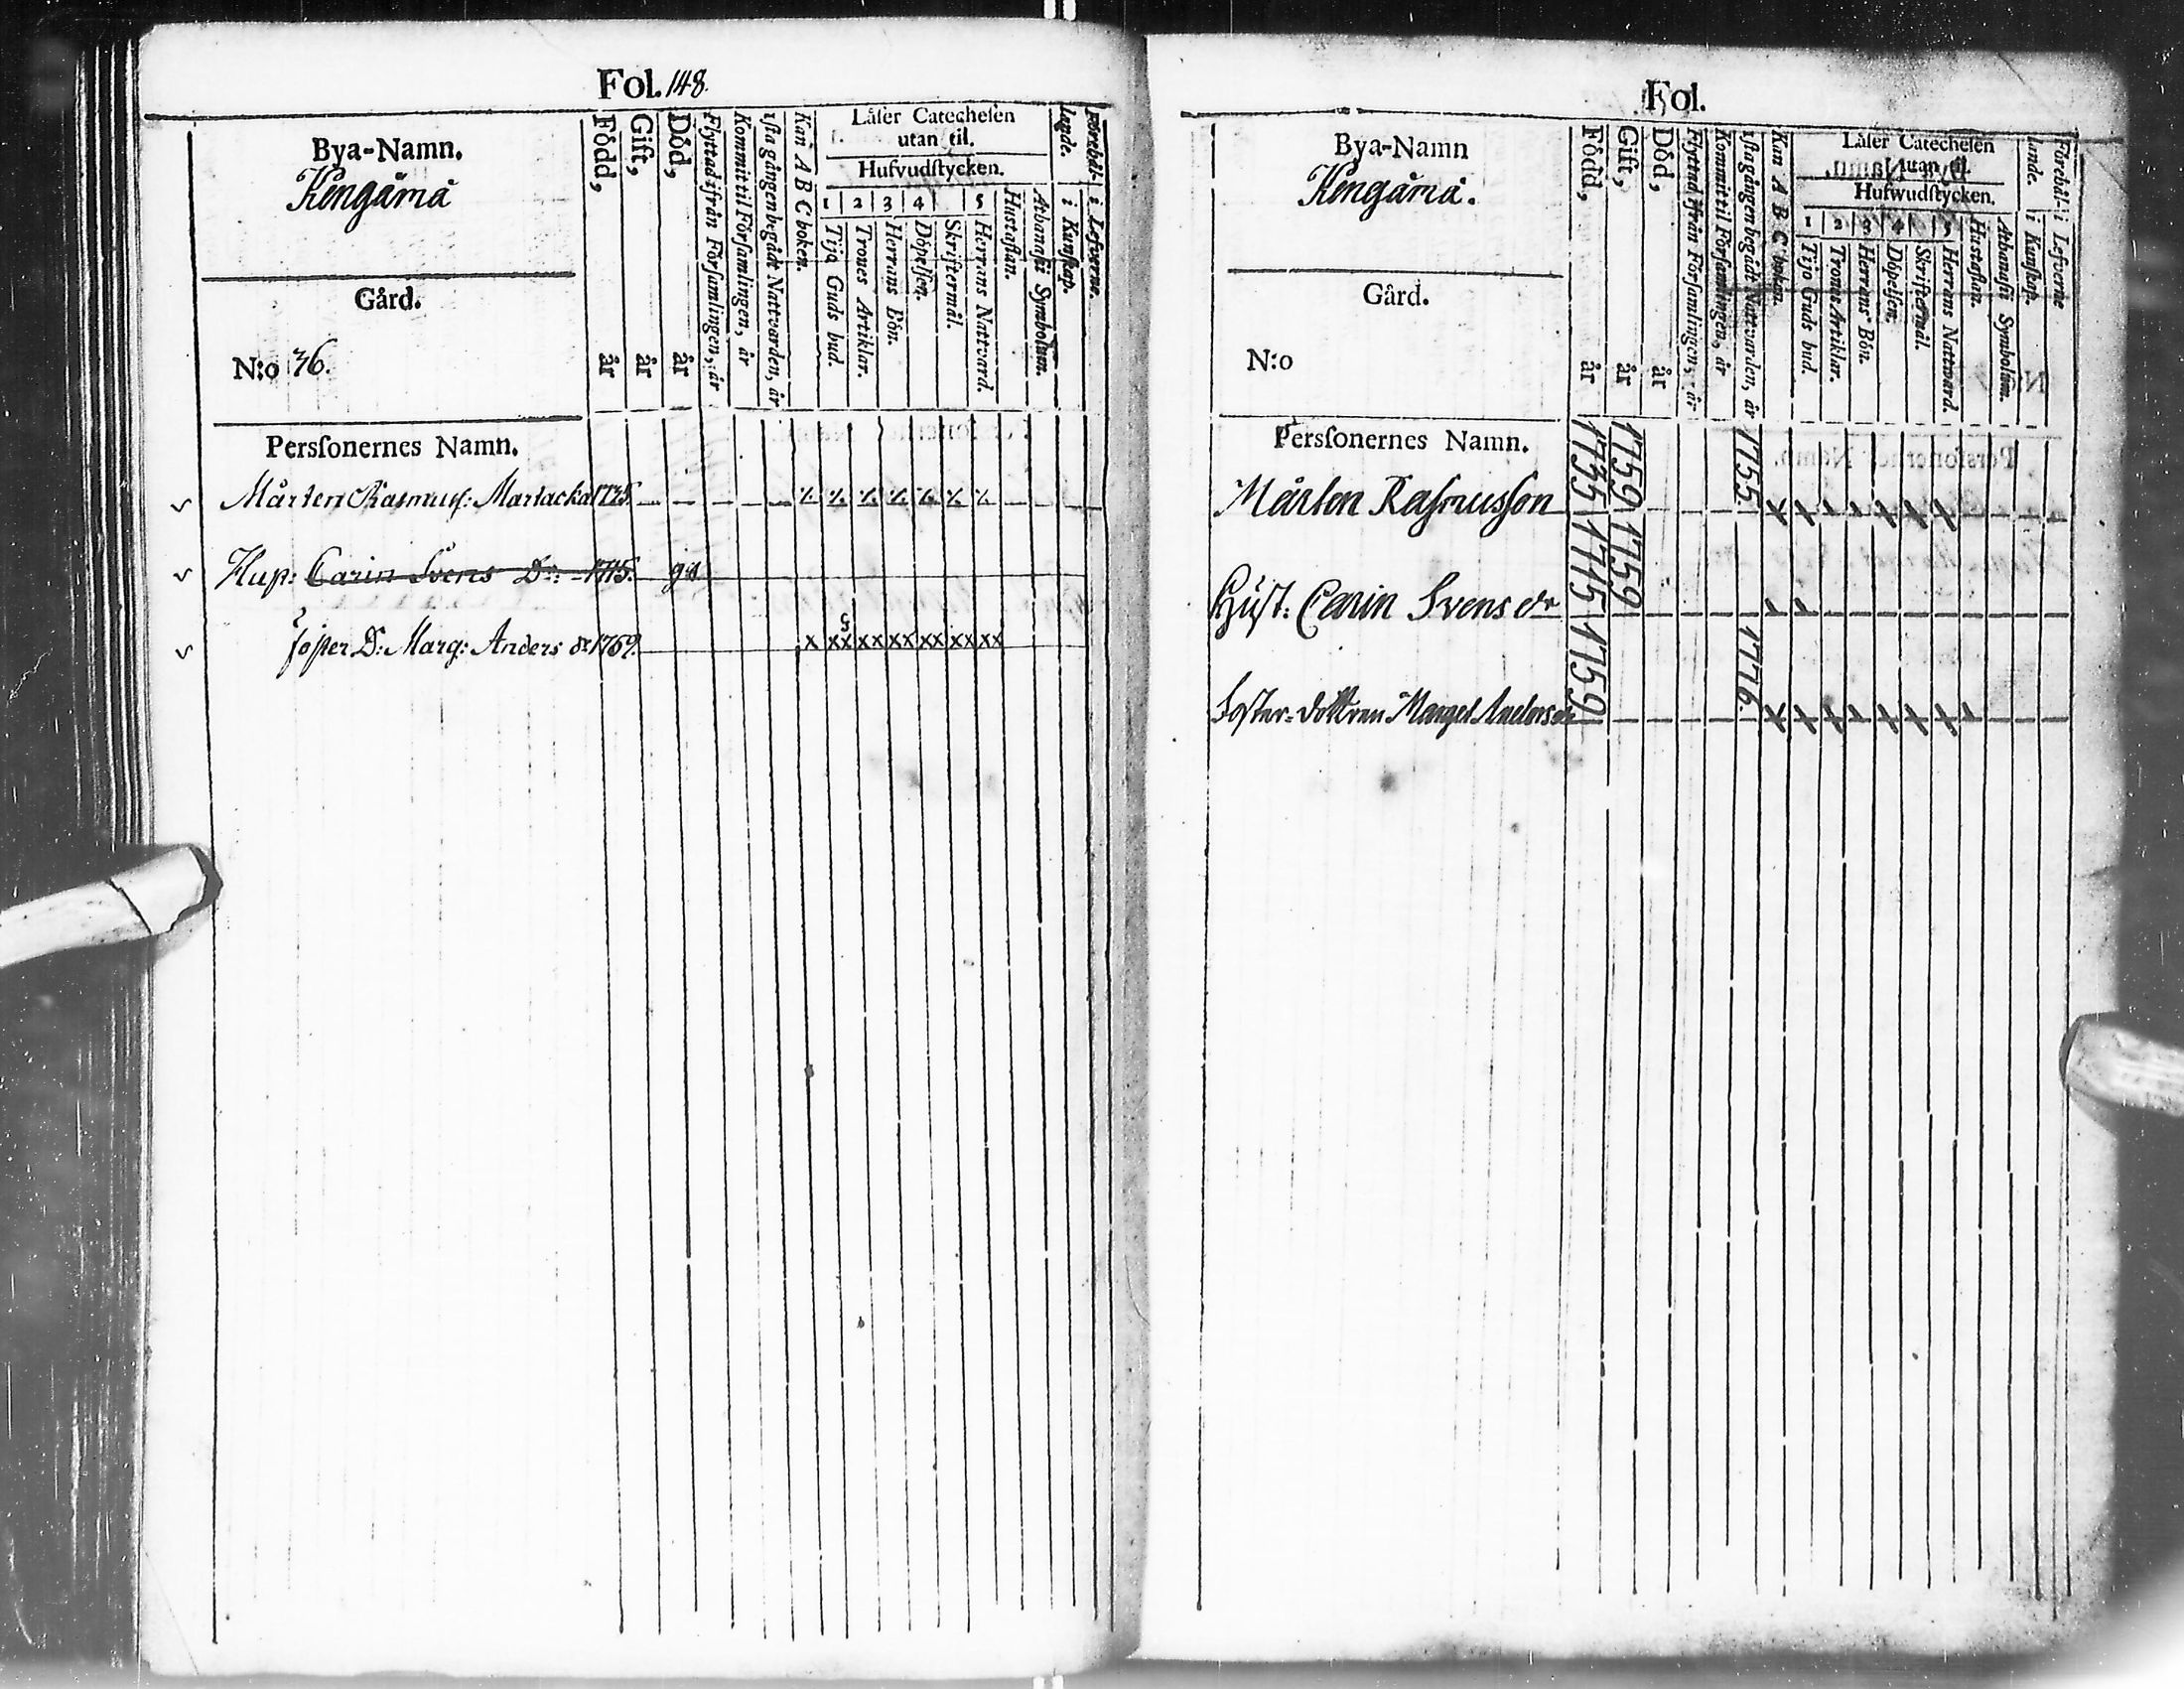 Fol. 148.
Bya-Namn.
Kengämä
Gård.
N:o 36.
Född, år
Gift, år
Död, år
Flyttad ifrån Församlingen, år
Kommit til Församlingen, år
1sta gången begådt Nattvarden, år
Kan A B C boken.
Låser Catecheſen
utan til.
Hufvudſtycken.
1 2 3 4 5
Tijo Guds bud.
Trones Artiklar.
Herrans Bön.
Döpelſen.
Skriftermål.
Herrans Nattvard.
Huſtaflan.
Athanaſii Symbolum.
Förehål-
lande.
i Kunſkap.
i Lefverne.
Perſonernes Namn.
Mårten Rasmuſ: Martacka 1735.
Hus: Carin Svens Dr: 1715.
foster D: Marg: Anders dr 1759. x xx xx xx xx xx xx
Fol.
Bya-Namn
Kengämä.
Gård.
N:o
Född, år
Gift, år
Död, år
Flyttad ifrån Församlingen, år
Kommit til Församlingen, år
1sta gången begådt Nattvarden, år
Kan A B C boken.
Låſer Catecheſen
utan til.
Hufwudſtycken.
1 2 3 4 5
Tijo Guds bud.
Trones Artiklar.
Herrans Bön.
Döpelſen.
Skriftermål.
Herrans Nattvard.
Huſtaflan.
Athanaſii Symbolum.
Förehål-
lande.
i Kunſkap.
i Lefverne
Perſonernes Namn.
Mårten Rasmusson 1735 1759 1755.
Hust: Carin Svens dr 1715 1759
Foster-dottren Marget Anders dr 1759 1776.